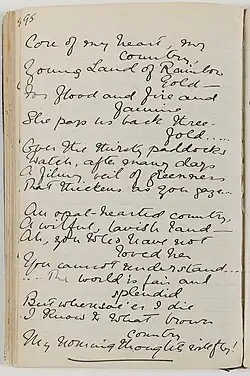 495
Core of my heart, my
Country!
Young Land of Rainbow
Gold —
For flood and fire and
famine
She pays us back three-
fold.....
Over the thirsty paddocks
Watch, after many days
A filmy veil of greenness
That thickens as you gaze...
An opal-hearted country,
A wilful, lavish land —
Ah, you who have not
loved her
You cannot understand....
.... The world is fair and
splendid
But whensoe'er I die
I know to what brown
Country
My homing thoughts will fly!